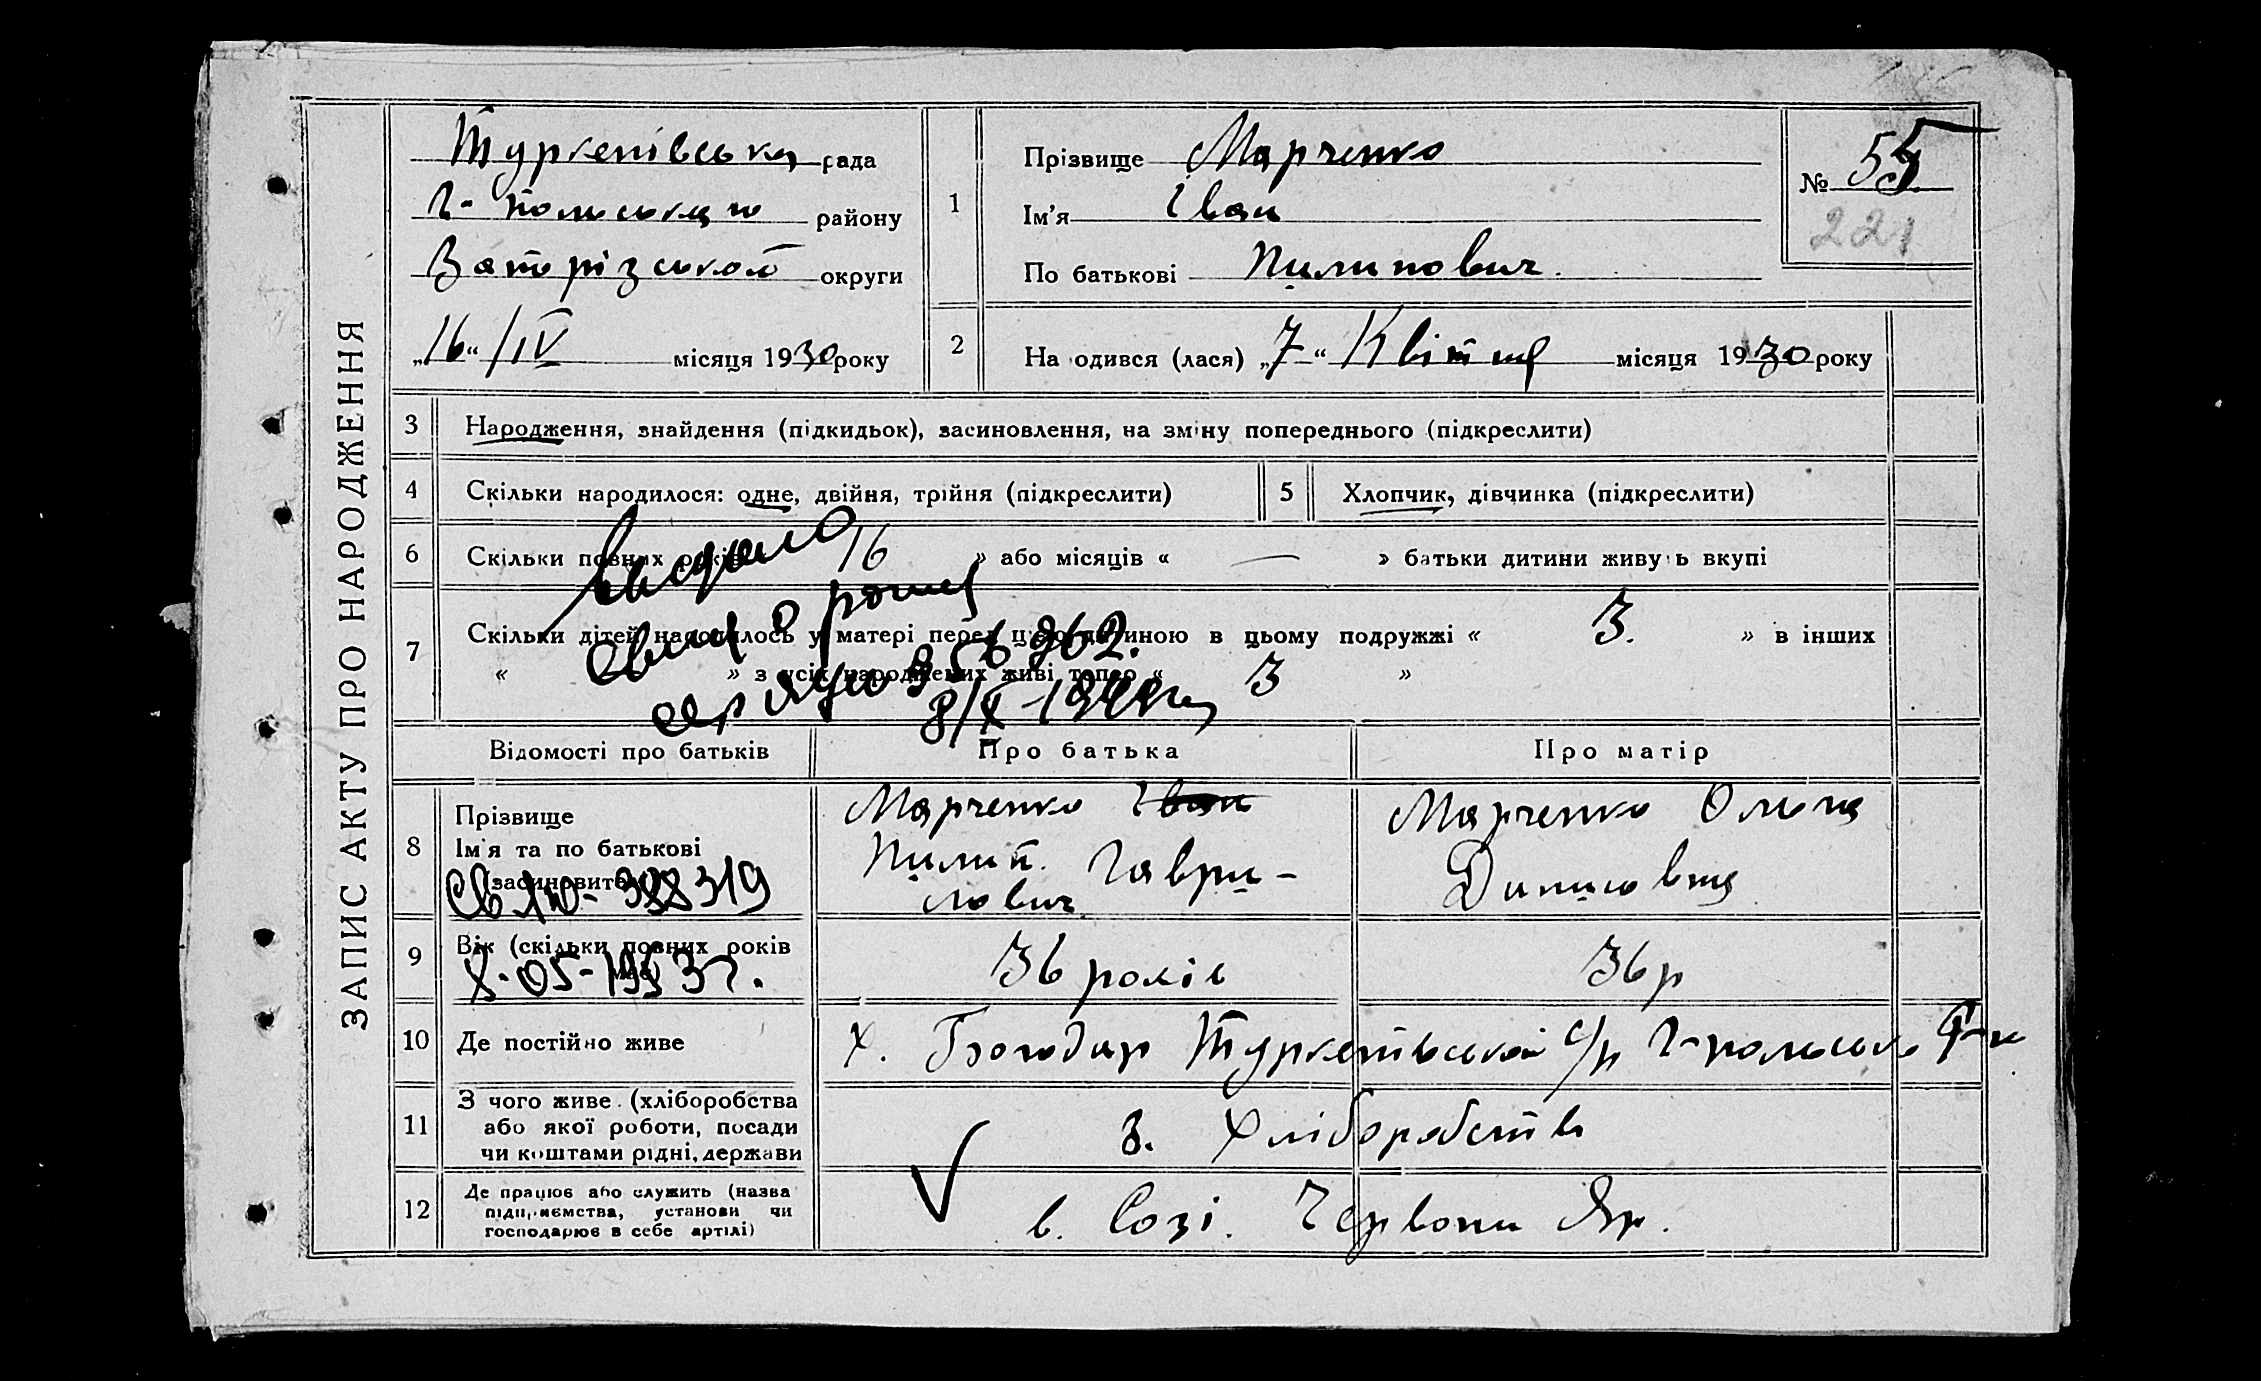 ЗАПИС АКТУ ПРО НАРОДЖЕННЯ
Туркенівська рада
Г-польського району
Запорізької округи
„16“ /IV місяця 1930 року
1
Прізвище Марченко
Ім'я Іван
По батькові Пилипович.
№ 55
221
2
На одився (лася) „7“ Квітня місяця 1930 року
3 Народження, знайдення (підкидьок), засиновлення, на зміну попереднього (підкреслити)
4 Скільки народилося: одне, двійня, трійня (підкреслити)
5 Хлопчик, дівчинка (підкреслити)
6 Скільки повних років 16 » або місяців « — » батьки дитини живуть вкупі
7 Скільки дітей народилось у матері перед цією дитиною в цьому подружжі « 3. » в інших
« » з усіх народжених живі тепер « 3 »
Видано
свид о рожд
8/X
Відомості про батьків
Про батька
Про матір
8
Прізвище
Ім'я та по батькові
(засиновител
398319
Марченко Іван
Пилип. Гаври-
лович
Марченко Ольга
9
Вік (скільки повних років
має)
36 років
36 р
10 Де постійно живе
х. Богодар Туркенівської с/р Г-польськ р-н
11
З чого живе (хліборобства
або якої роботи, посади
чи коштами рідні, держави
З. Хліборобств
12
Де працює або служить (назва
підприємства, установи чи
господарює в себе артілі)
в. Созі. Червони Яр.